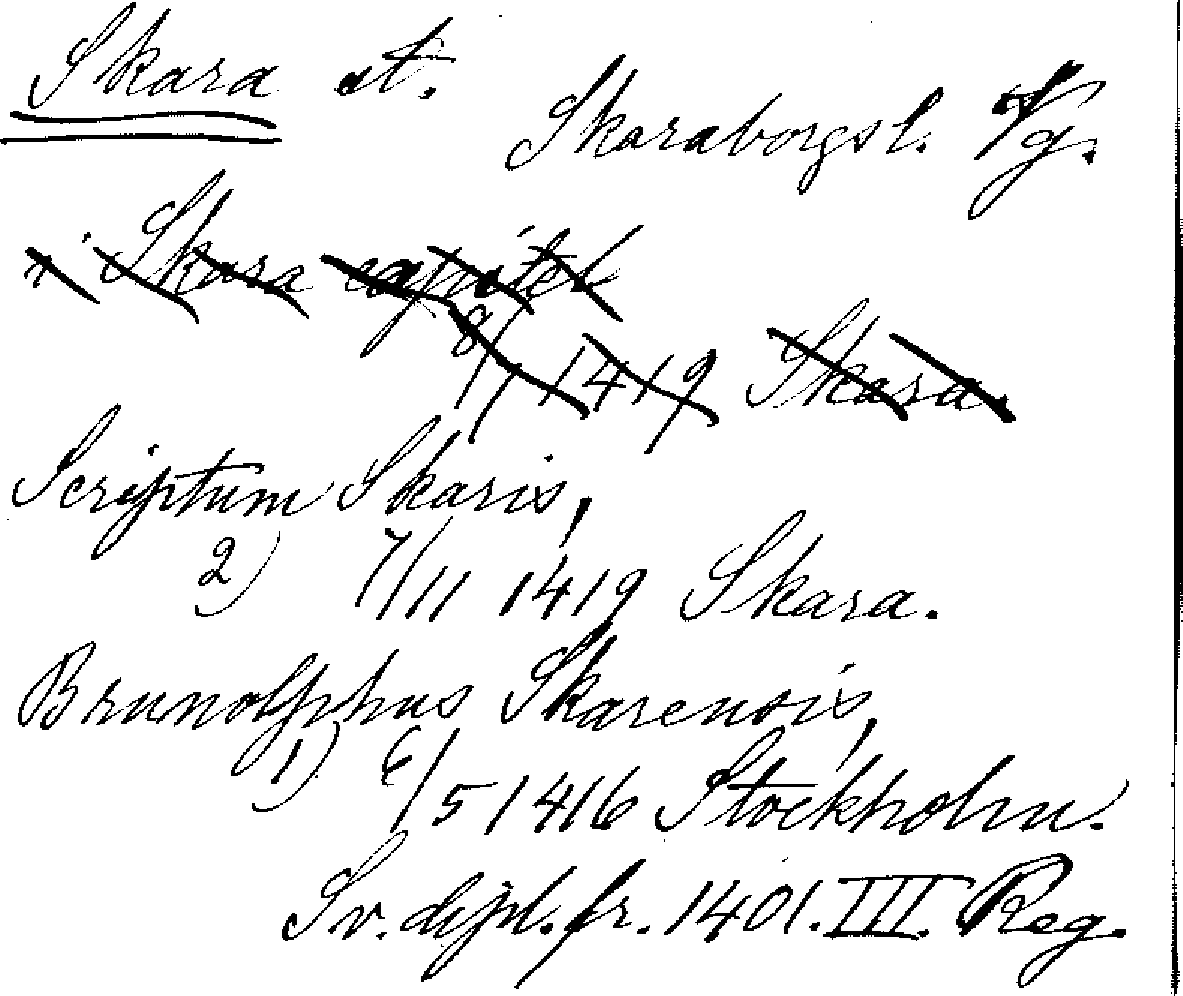 Skara st.
Skaraborgsl. Vg.
i Skara capitel
8/1 1419 Skara.
Scriptum Skaris,
2) 7/11 1419 Skara.
Brunolphus Skarensis,
1) 6/5 1416 Stockholm.
Sv. dipl. fr. 1401. III. Reg.